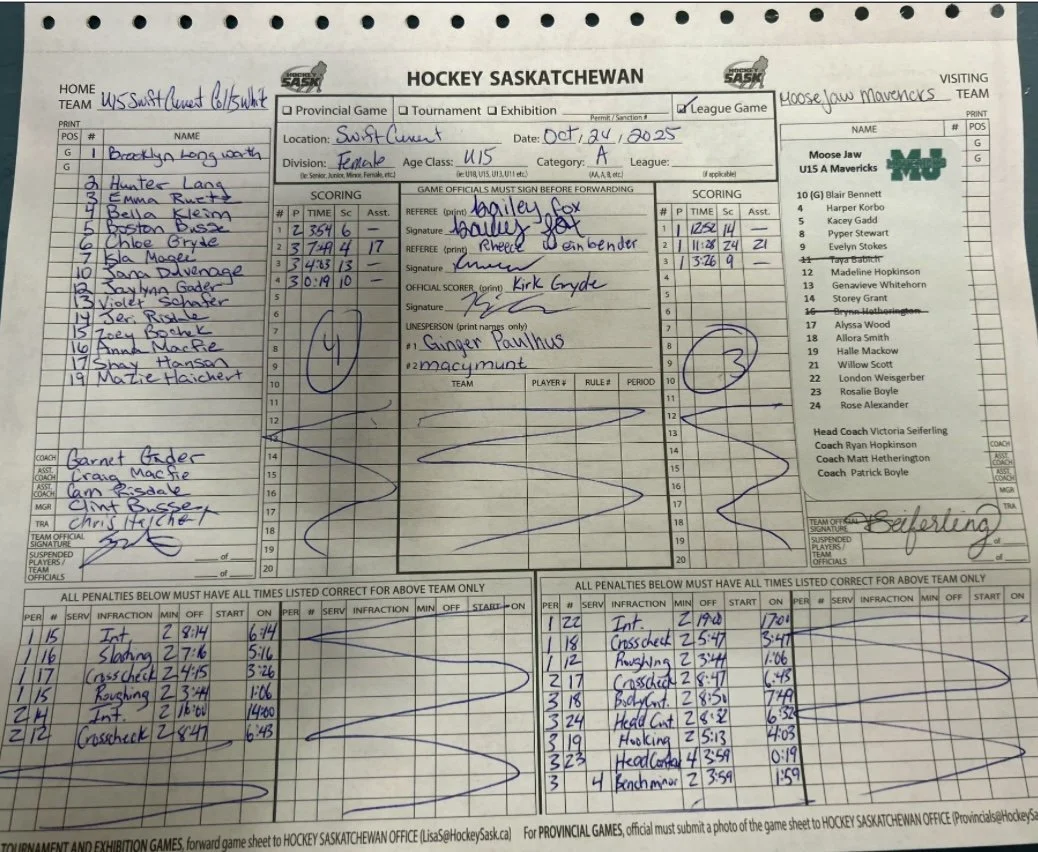 HOCKEY SASK
HOCKEY SASKATCHEWAN
HOCKEY SASK
HOME TEAM U15 Swift Current Colts White
☐ Provincial Game ☐ Tournament ☐ Exhibition Permit / Sanction # ☑ League Game
Location: Swift Current Date: Oct, 24, 2025
Division: Female Age Class: U15 Category: A League:
(ie: Senior, Junior, Minor, Female, etc.) (ie: U18, U15, U13, U11 etc.) (AA, A, B, etc.) (if applicable)
VISITING TEAM Moose Jaw Mavericks
PRINT
POS # NAME
G 1 Brooklyn Longworth
G
2 Hunter Lang
3 Emma
4 Bella Kleim
5 Boston Busse
6 Chloe Gryde
7 Isla Magee
10 Jana Duvenage
12 Jaylynn Gader
13 Violet Schafer
14 Jeri Risdale
15 Zoey Bochek
16 Anna Macfie
17 Shay Hanson
19 Mazie Haichert
COACH Garnet Gader
ASST. COACH Craig Macfie
ASST. COACH Cam Risdale
MGR Clint Busse
TRA Chris Haichert
TEAM OFFICIAL SIGNATURE
SUSPENDED PLAYERS / TEAM OFFICIALS
of
of
SCORING
# P TIME Sc Asst.
1 2 3:54 6 —
2 3 7:49 4 17
3 3 4:23 13 —
4 3 0:19 10 —
5
6
7
8
9
10
11
12
13
14
15
16
17
18
19
20
4
GAME OFFICIALS MUST SIGN BEFORE FORWARDING
REFEREE (print) bailey fox
Signature bailey fox
REFEREE (print) Rheece Weinbender
Signature
OFFICIAL SCORER (print) Kirk Gryde
Signature
LINESPERSON (print names only)
#1 Ginger Paulhus
#2 macy munt
TEAM PLAYER # RULE # PERIOD
SCORING
# P TIME Sc Asst.
1 1 12:52 14 —
2 1 11:28 24 21
3 1 3:26 9 —
4
5
6
7
8
9
10
11
12
13
14
15
16
17
18
19
20
3
PRINT
NAME # POS
G
G
Moose Jaw
U15 A Mavericks
MAVERICKS
MJ
10 (G) Blair Bennett
4 Harper Korbo
5 Kacey Gadd
8 Pyper Stewart
9 Evelyn Stokes
11 Taya Babich
12 Madeline Hopkinson
13 Genavieve Whitehorn
14 Storey Grant
16 Brynn Hetherington
17 Alyssa Wood
18 Allora Smith
19 Halle Mackow
21 Willow Scott
22 London Weisgerber
23 Rosalie Boyle
24 Rose Alexander
Head Coach Victoria Seiferling
Coach Ryan Hopkinson
Coach Matt Hetherington
Coach Patrick Boyle
COACH
ASST. COACH
ASST. COACH
MGR
TRA
TEAM OFFICIAL SIGNATURE VSeiferling
SUSPENDED PLAYERS / TEAM OFFICIALS
of
of
ALL PENALTIES BELOW MUST HAVE ALL TIMES LISTED CORRECT FOR ABOVE TEAM ONLY
PER # SERV INFRACTION MIN OFF START ON PER # SERV INFRACTION MIN OFF START ON
1 15 Int. 2 8:14 6:14
1 16 Slashing 2 7:16 5:16
1 17 Crosscheck 2 4:15 3:26
1 15 Roughing 2 3:44 1:06
2 14 Int. 2 16:00 14:00
2 12 Crosscheck 2 8:47 6:43
ALL PENALTIES BELOW MUST HAVE ALL TIMES LISTED CORRECT FOR ABOVE TEAM ONLY
PER # SERV INFRACTION MIN OFF START ON PER # SERV INFRACTION MIN OFF START ON
1 22 Int. 2 19:00 17:00
1 18 Crosscheck 2 5:47 3:47
1 12 Roughing 2 3:44 1:06
2 17 Crosscheck 2 8:47 6:43
3 18 Body Cnt. 2 8:50 7:49
3 24 Head Cnt 2 8:32 6:32
3 19 Hooking 2 5:13 4:03
3 23 Head Contact 4 3:59 0:19
3 4 Bench minor 2 3:59 1:59
TOURNAMENT AND EXHIBITION GAMES, forward game sheet to HOCKEY SASKATCHEWAN OFFICE (LisaS@HockeySask.ca) For PROVINCIAL GAMES, official must submit a photo of the game sheet to HOCKEY SASKATCHEWAN OFFICE (Provincials@HockeySa